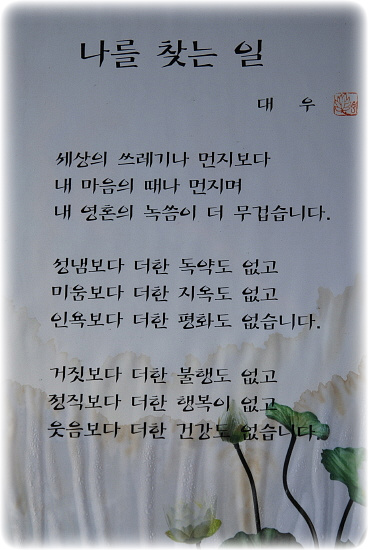 나를 찾는 일
대 우
세상의 쓰레기나 먼지보다
내 마음의 때나 먼지며
내 영혼의 녹씀이 더 무겁습니다.
성냄보다 더한 독약도 없고
미움보다 더한 지옥도 없고
인욕보다 더한 평화도 없습니다.
거짓보다 더한 불행도 없고
정직보다 더한 행복이 없고
웃음보다 더한 건강도 없습니다.